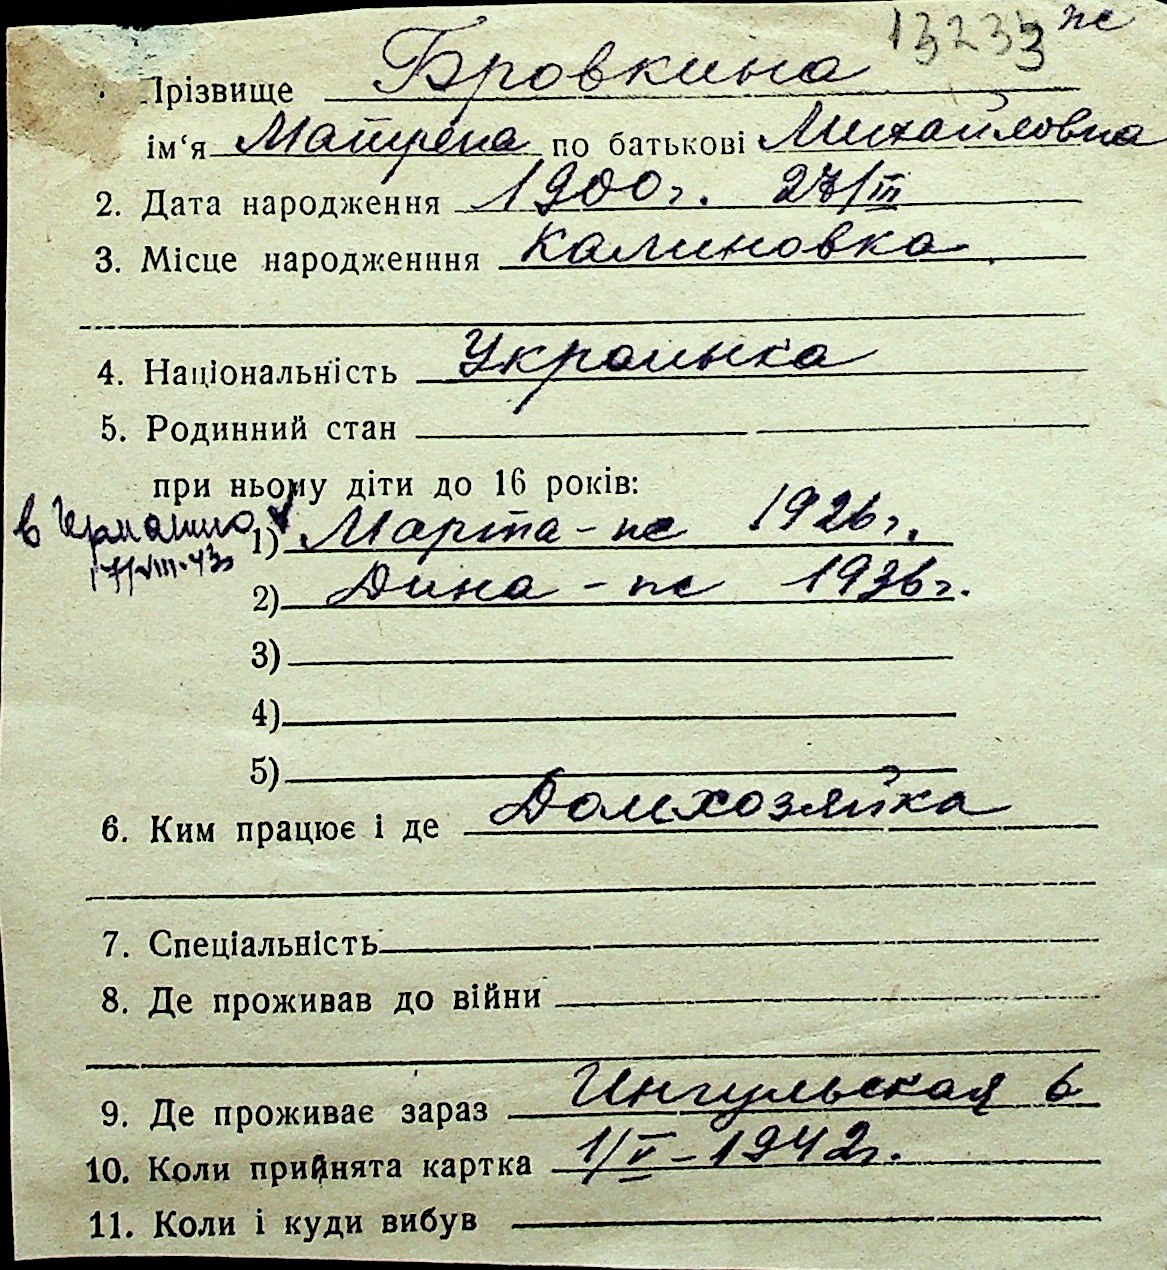 13233 пс
Прізвище Бровкина
ім‘я Матрена по батькові Михайловна
2. Дата народження 1900г. 27/III
3. Місце народженння Калиновка
4. Національність Украинка
5. Родинний стан
при ньому діти до 16 років:
в Германию 1) Марта - пс 1926г.
17/VIII-43
2) Дина - пс 1936г.
3)
4)
5)
6. Ким працює і де Домхозяйка
7. Спеціальність
8. Де проживав до війни
9. Де проживає зараз Ингульская 6
10. Коли прийнята картка 1/V - 1942г.
11. Коли і куди вибув